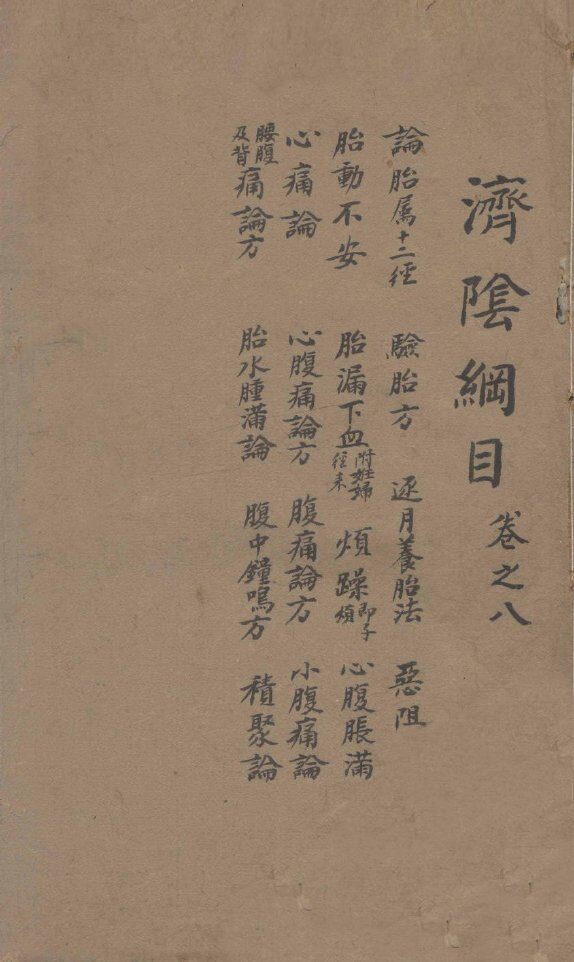 濟陰綱目 卷之八
論胎属十二徑 驗胎方 逐月養胎法 惡阻
胎動不安 胎漏下血附姙婦徑來 煩躁即子煩 心腹脹滿
心痛論 心腹痛論方 腹痛論方 小腹痛論
腰腹及背痛論方 胎水腫滿論 腹中鐘鳴方 積聚論